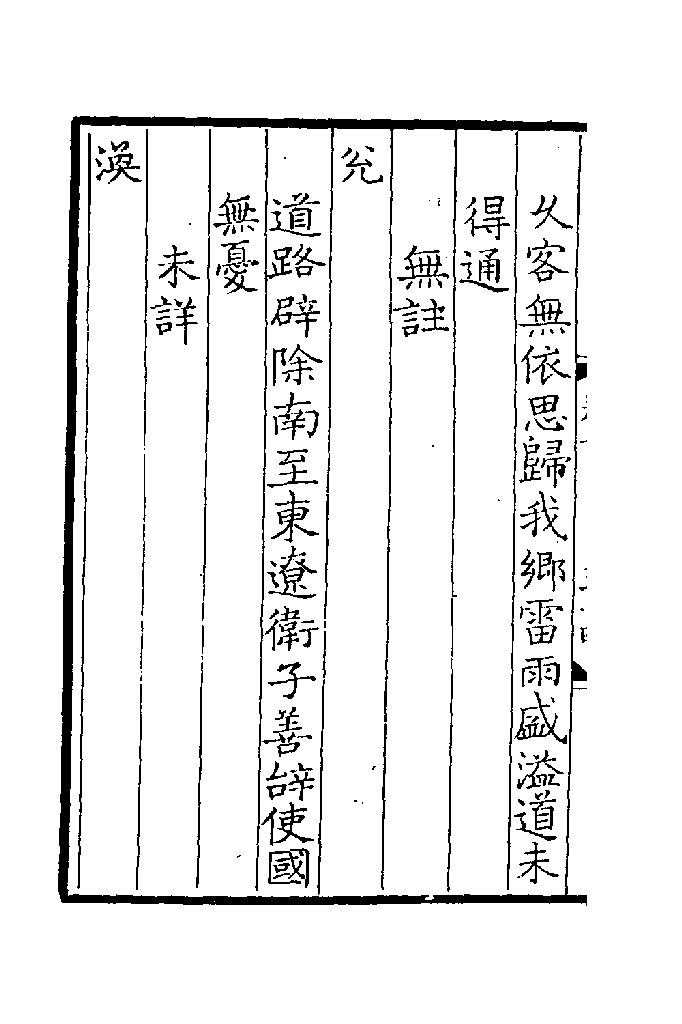 久客無依思歸我鄉雷雨盛溢道未
得通
無註
兊
道路辟除南至東遼衛子善辝使國
無憂
未詳
渙